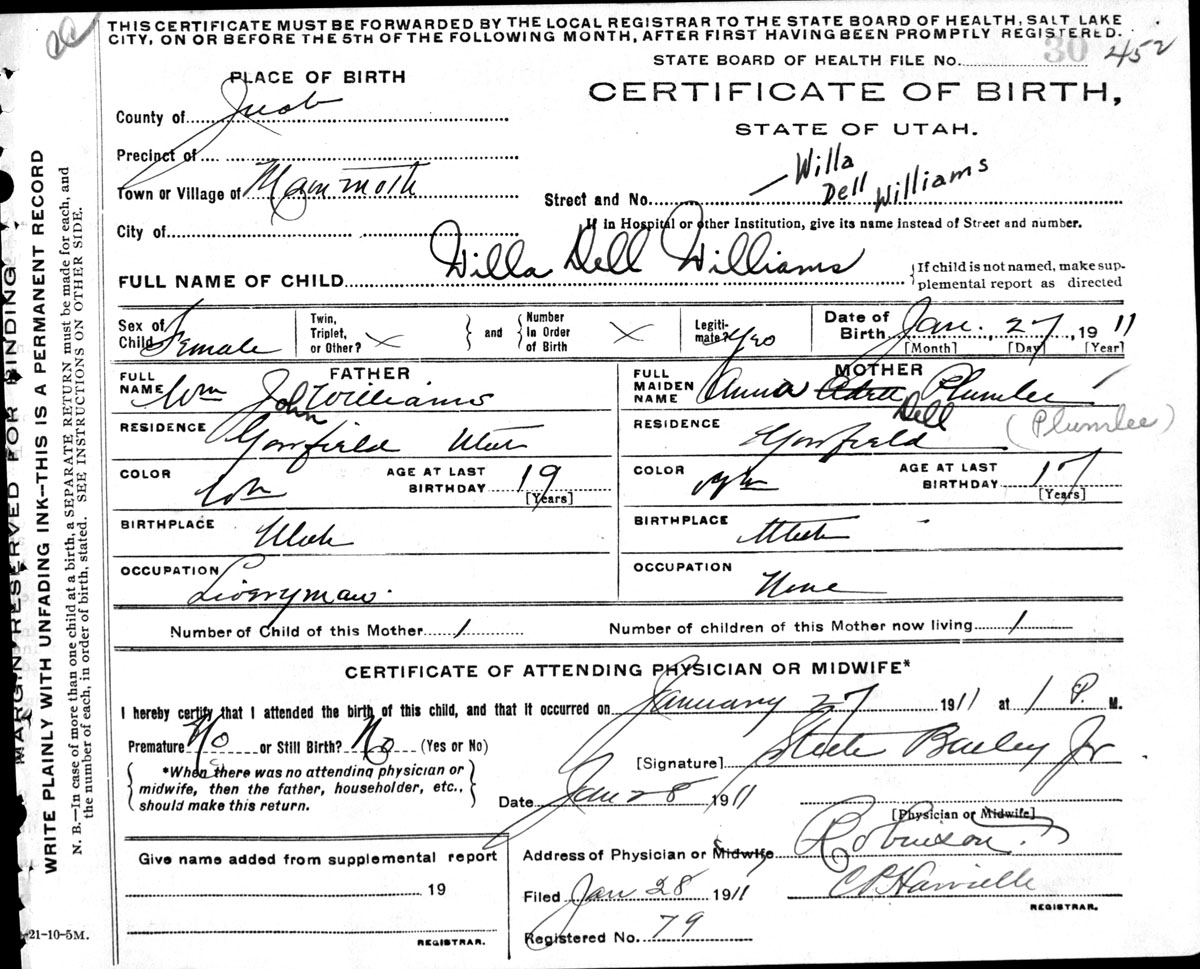 THIS CERTIFICATE MUST BE FORWARDED BY THE LOCAL REGISTRAR TO THE STATE BOARD OF HEALTH, SALT LAKE
CITY, ON OR BEFORE THE 5TH OF THE FOLLOWING MONTH, AFTER FIRST HAVING BEEN PROMPTLY REGISTERED.
STATE BOARD OF HEALTH FILE No. 30 452
PLACE OF BIRTH
CERTIFICATE OF BIRTH,
STATE OF UTAH.
County of Juab
Precinct of
Town or Village of Mammoth
Street and No. Willa Dell Williams
City of
If in Hospital or other Institution, give its name instead of Street and number.
FULL NAME OF CHILD Willa Dell Williams
{If child is not named, make sup-
plemental report as directed
Sex of Child Female
Twin, Triplet, or Other? X } and { Number In Order of Birth X
Legiti-mate? Yes
Date of Birth Jan. 27, 1911
[Month] [Day] [Year]
FATHER
FULL NAME Wm John Williams
RESIDENCE Utah
COLOR Wh
AGE AT LAST BIRTHDAY 19
[Years]
BIRTHPLACE Utah
OCCUPATION Liveryman
MOTHER
FULL MAIDEN NAME Anna Dell Plumlee
(Plumlee)
RESIDENCE
COLOR Wh
AGE AT LAST BIRTHDAY 17
[Years]
BIRTHPLACE Utah
OCCUPATION None
Number of Child of this Mother 1
Number of children of this Mother now living 1
CERTIFICATE OF ATTENDING PHYSICIAN OR MIDWIFE*
I hereby certify that I attended the birth of this child, and that it occurred on January 27 1911 at 1 P. M.
Premature No or Still Birth? No (Yes or No)
[Signature] Steele Bailey Jr
{*When there was no attending physician or
midwife, then the father, householder, etc.,
should make this return.}
Date Jan 28 1911
[Physician or Midwife]
Address of Physician or Midwife Robinson
Give name added from supplemental report
19
REGISTRAR.
Filed Jan 28 1911
REGISTRAR.
Registered No. 79
21-10-5M.
MARGIN RESERVED FOR BINDING
WRITE PLAINLY WITH UNFADING INK—THIS IS A PERMANENT RECORD
N. B.—In case of more than one child at a birth, a SEPARATE RETURN must be made for each, and
the number of each, in order of birth, stated. SEE INSTRUCTIONS ON OTHER SIDE.